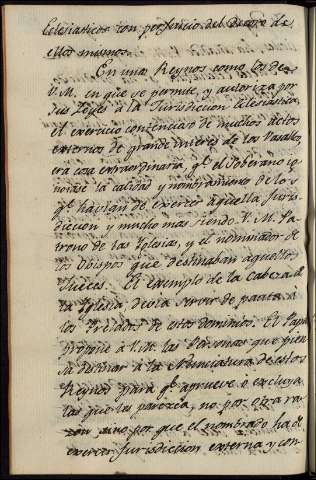 Eclesiasticos con perjuicio del Decoro de
ellos mismos.
En unos Reynos como los de
V. M. en que se permite, y autoriza por
sus Leyes à la Jurisdiccion Eclesiastica
el exercicio contencioso de muchos actos
externos de grande interes de los Vasallos,
era cosa extraordinaria qe. el Soberano ig
norase la calidad y nombramiento de los
qe. habian de exercer aquella Juris-
diccion y mucho mas siendo V. M. Pa-
trono de las Iglesias, y el nominador de
los Obispos que destinaban aquellos
Jueces. El exemplo de la Cabeza de
la Iglesia debia servir de pauta à
los Prelados de estos dominios. El Papa
propone à V. M. las Personas que pien
sa destinar à la Nunciatura de estos
Reynos para qe. apruebe o excluya
las que las parezca, no por otra ra-
zon sino por que el nombrado ha de
exercer Jurisdiccion externa y con-